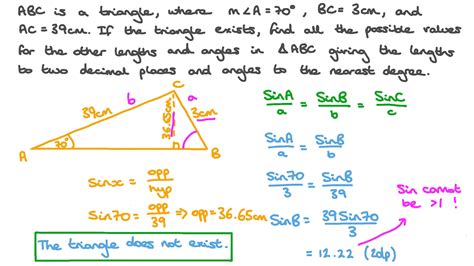 ABC is a triangle, where m∠A = 70°, BC = 3cm, and
AC = 39cm. If the triangle exists, find all the possible values
for the other lengths and angles in △ABC giving the lengths
to two decimal places and angles to the nearest degree.
C
b
a
39cm
36.65cm
3cm
70°
A
B
SinA/a = SinB/b = SinC/c
SinA/a = SinB/b
Sinx = opp/hyp
Sin70/3 = SinB/39
Sin cannot
be >1 !
Sin70 = opp/39 => opp = 36.65cm
SinB = 39Sin70/3
The triangle does not exist.
= 12.22 (2dp)